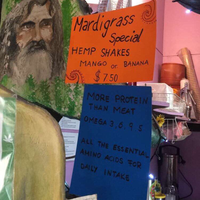 Mardigrass
Special
HEMP SHAKES
MANGO or BANANA
$7.50
MORE PROTEIN
THAN MEAT
OMEGA 3, 6, 9
ALL THE ESSENTIAL
AMINO ACIDS FOR
DAILY INTAKE